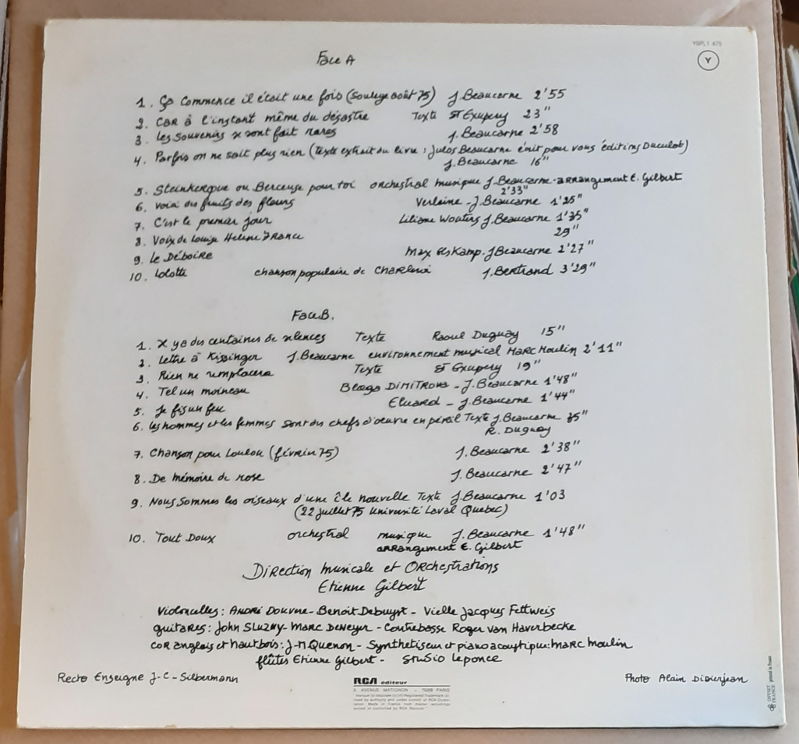 YSPL1 475
Y
Face A
1. Ça commence il était une fois (Souleye août 75) J. Beaucarne 2'55
2. Car à l'instant même du désastre Texte St Exupery 23"
3. Les souvenirs se sont fait rares J. Beaucarne 2'58
4. Parfois on ne sait plus rien (texte extrait du livre : Jules Beaucarne écrit pour vous éditions Duculot)
J. Beaucarne 16"
5. Steinkerque ou Berceuse pour toi orchestral musique J. Beaucarne - arrangement E. Gilbert
2'33"
6. Voici des fruits des fleurs Verlaine - J. Beaucarne 1'25"
7. C'est le premier jour Liliane Wouters J. Beaucarne 1'35"
8. Voix de Louise Helene France 29"
9. Le Déboire Max Elskamp. J Beaucarne 2'27"
10. Lolotte chanson populaire de Charleroi J. Bertrand 3'29"
Face B.
1. Il y a des centaines de silences Texte Raoul Duguay 15"
2. Lettre à Kissinger J. Beaucarne environnement musical Marc Moulin 2'11"
3. Rien ne remplacera Texte St Exupery 19"
4. Tel un moineau Blaga Dimitrova - J. Beaucarne 1'48"
5. Je fis un feu Eluard - J. Beaucarne 1'44"
6. Les hommes et les femmes sont des chefs d'oeuvre en péril Texte J. Beaucarne 35"
R. Duguay
7. Chanson pour Loulou (février 75) J. Beaucarne 2'38"
8. De mémoire de rose J. Beaucarne 2'47"
9. Nous sommes les oiseaux d'une île nouvelle Texte J. Beaucarne 1'03
(22 juillet 75 Université Laval Quebec)
10. Tout Doux orchestral musique J. Beaucarne 1'48"
arrangement E. Gilbert
Direction musicale et Orchestrations
Etienne Gilbert
Violoncelles : André Douvne - Benoit Debuyst - Vielle Jacques Fettweis
guitares : John Sluzny - Marc Deneyer - Contrebasse Roger van Haverbecke
cor anglais et hautbois : J-M Quenon - Synthetiseur et piano acoustique : Marc Moulin
flûtes Etienne Gilbert - Studio Leponce
Recto Enseigne J-C-Silbermann
RCA editeur
9, AVENUE MATIGNON - 75008 PARIS
Photo Alain Dierickjean